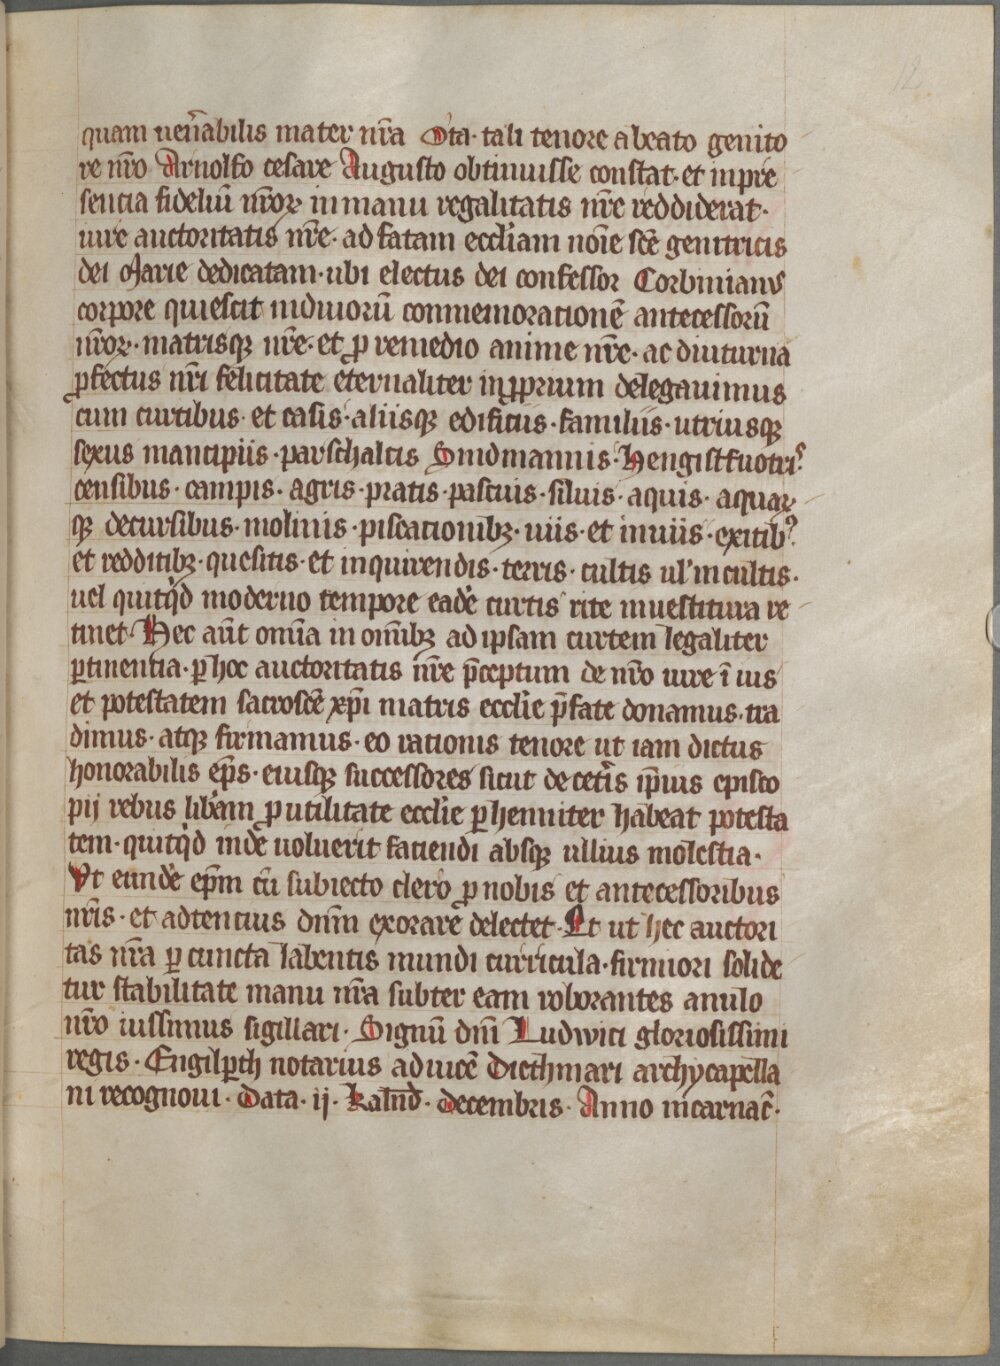 quam uen̄abilis mater nr̄a Ota· tali tenore a beato genito
re nr̄o Arnolfo cesare Augusto obtinuisse constat· et in pre
sencia fideliū nr̄oꝝ in manu regalitatis nr̄e reddiderat·
iure auctoritatis nr̄e· ad fatam eccl̄iam noīe sc̄e genitricis
dei Marie dedicatam· ubi electus dei confessor Corbinianus
corpore quiescit in diuiorū conmemoracionē antecessorū
nr̄oꝝ· matrisqꝫ nr̄e· et ꝓ remedio anime nr̄e· ac diuturna
ꝓfectus nr̄i felicitate eternaliter in ꝓprium delegauimus
cum curtibus· et casis· aliisqꝫ edificiis· familiis· utriusqꝫ
sexus mancipiis· parschalcis Snidmannis· Hengistfuotris
censibus· campis· agris· pratis· pascuis· siluis· aquis· aquaꝝ
qꝫ decursibus· molinis· piscationibꝫ· uiis· et inuiis· exitibꝰ
et redditibꝫ· quesitis· et inquirendis· terris· cultis ul' incultis·
uel quitqͥd moderno tempore eadē curtis rite inuestitura re
tinet· Hec aūt omīa in om̄ibꝫ ad ipsam curtem legaliter
ꝑtinentia· ꝑ hoc auctoritatis nr̄e p̄ceptum de nr̄o iure ī ius
et potestatem sacrosc̄e xp̄i matris eccl̄ie p̄fate donamus· tra
dimus· atqꝫ firmamus· eo rationis tenore ut iam dictus
honorabilis ep̄s· eiusqꝫ successores sicut de cet̄is ip̄ius episco
pij rebus lib̄am ꝓ utilitate eccl̄ie ꝑhenniter habeat potesta
tem· quitqͥd inde uoluerit faciendi absqꝫ ullius molestia·
Vt eundē ep̄m cū subiecto clero ꝓ nobis et antecessoribus
nr̄is· et adtencius dn̄m exorare delectet· Et ut hec auctori
tas nr̄a ꝑ cuncta labentis mundi curricula· firmiori solide
tur stabilitate manu nr̄a subter eam roborantes anulo
nr̄o iussimus sigillari· Signū dn̄i Ludwici gloriosissimi
regis· Engilꝑth notarius ad uicē Diethmari archycapella
ni recognoui· Data· ij· kalnd̄· decembris· Anno incarnac̄·